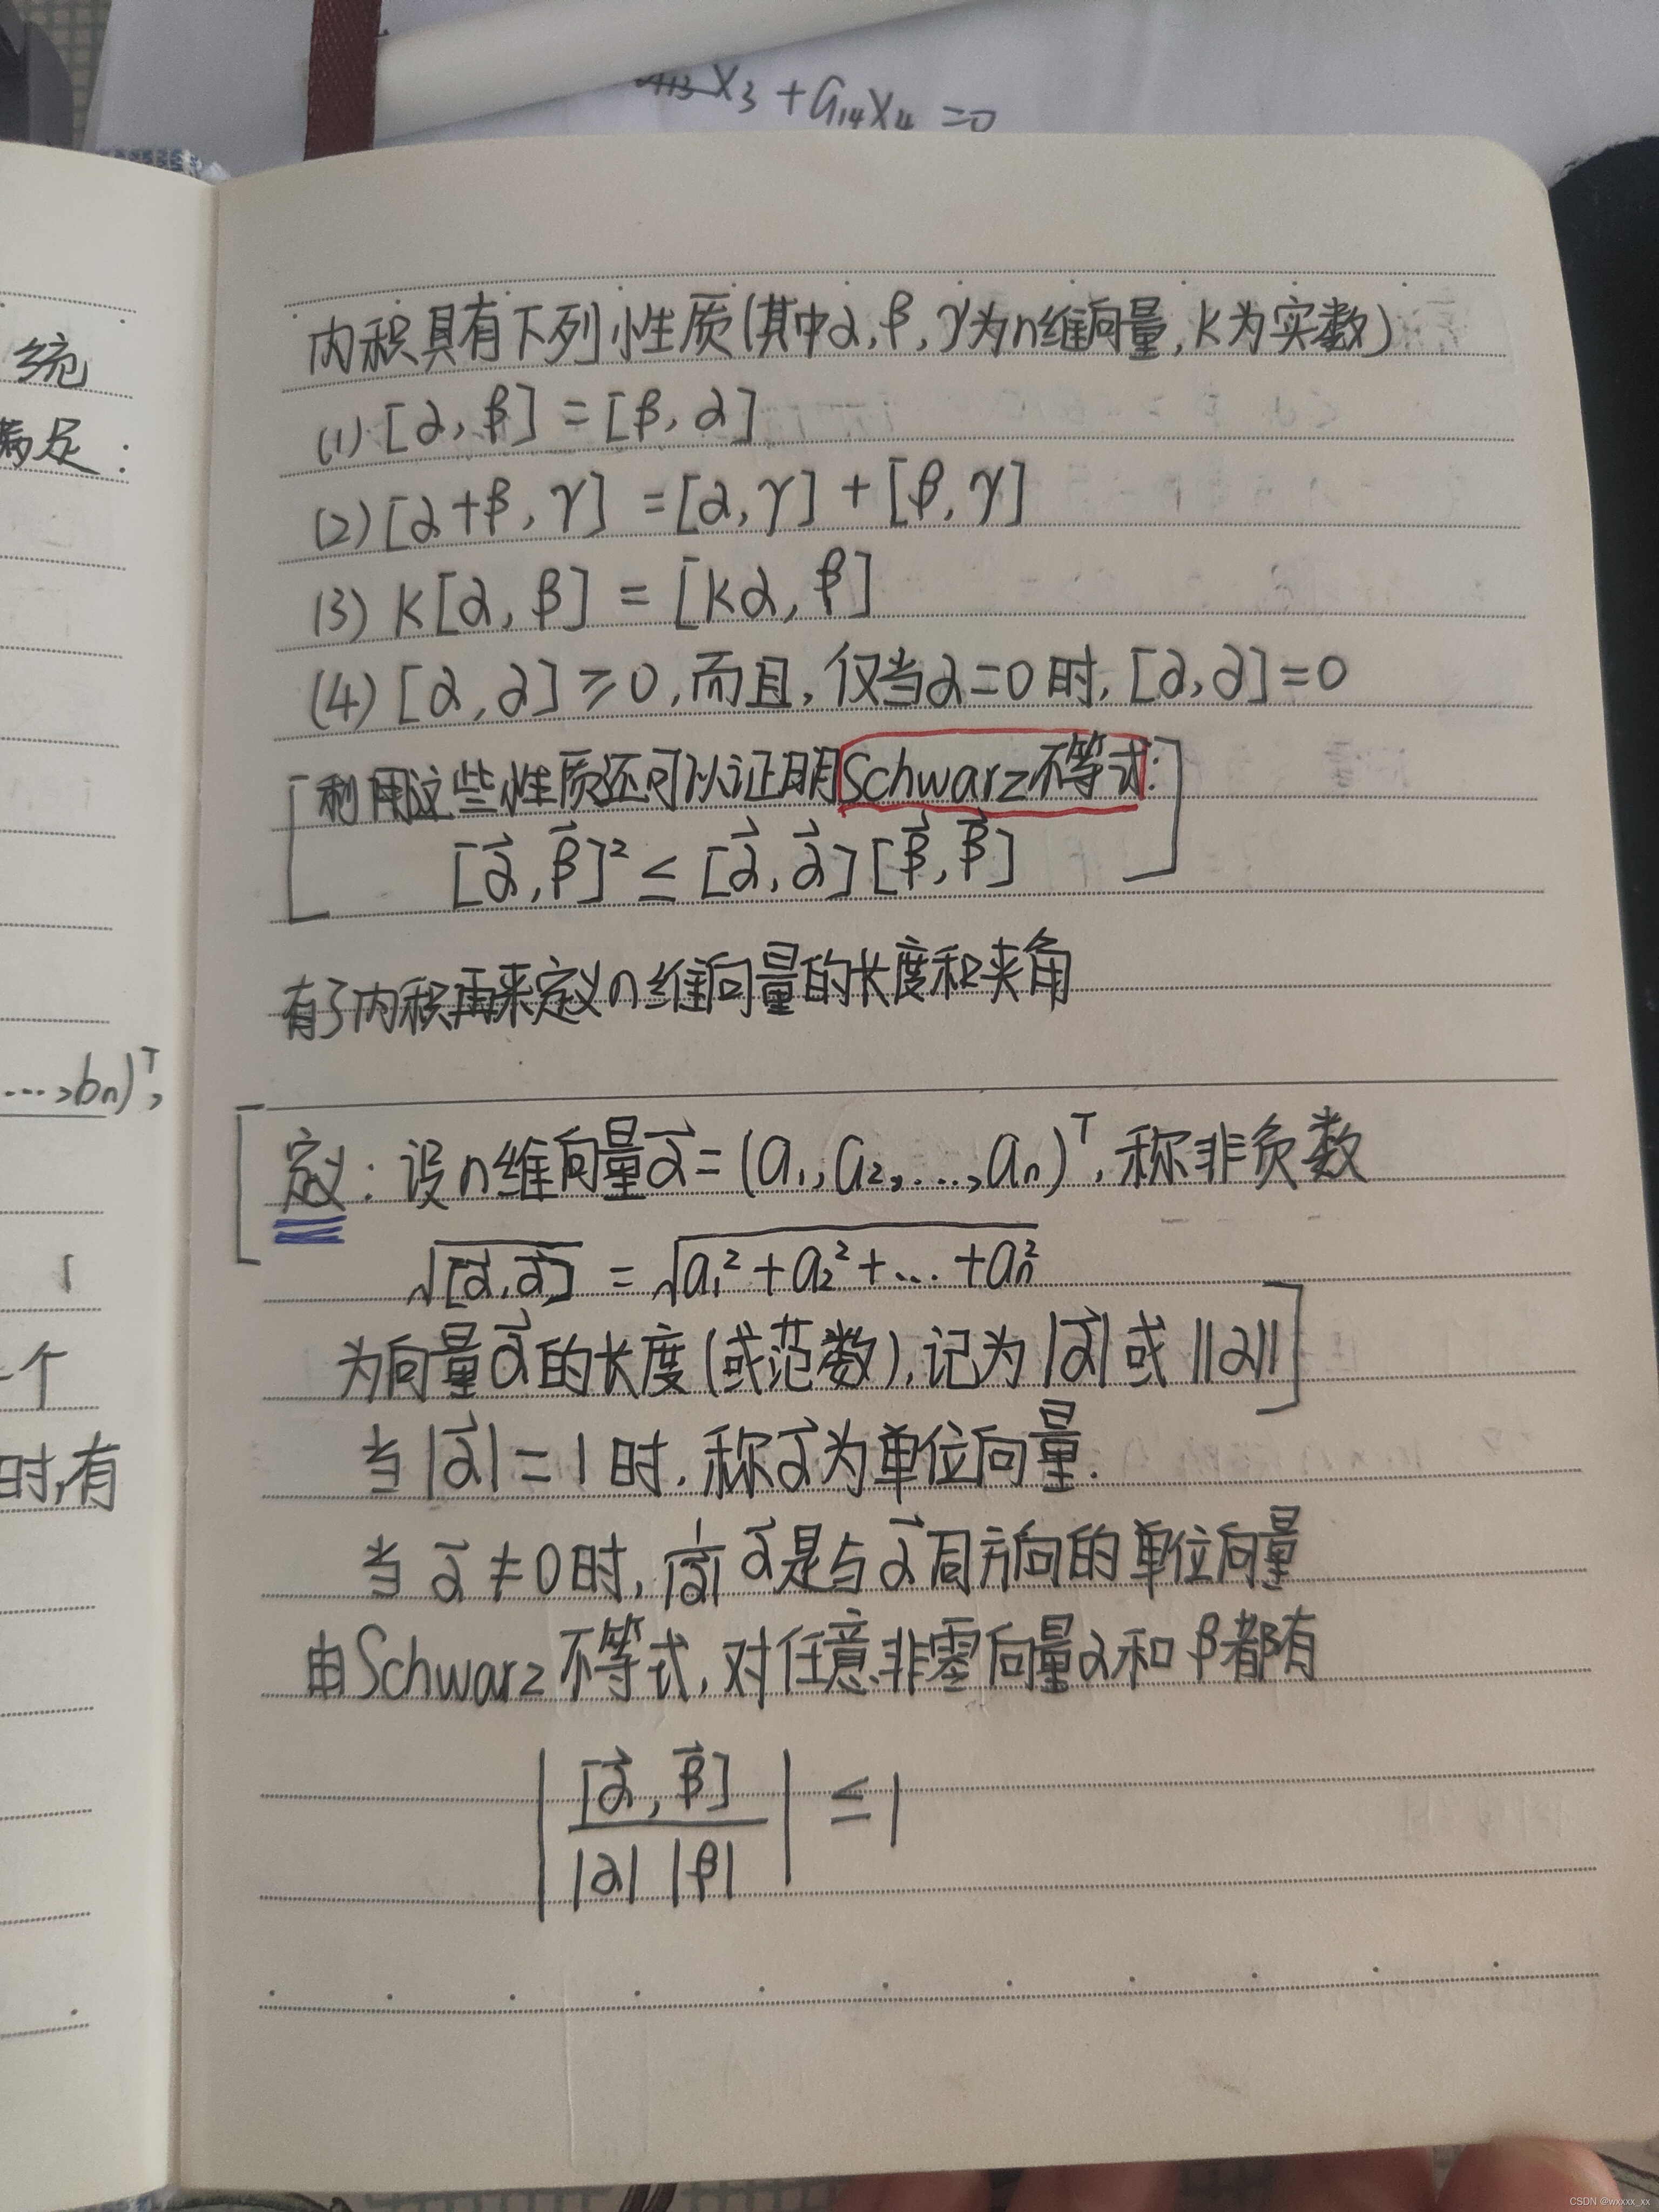 X3 + a14X4 = 0
统
满足:
…,bn)^T,
1
个
时,有
内积具有下列性质(其中α,β,γ为n维向量,k为实数)
(1) [α,β] = [β,α]
(2) [α+β,γ] = [α,γ] + [β,γ]
(3) k[α,β] = [kα,β]
(4) [α,α] ≥ 0,而且,仅当α=0时,[α,α]=0
利用这些性质还可以证明Schwarz不等式:
[α⃗,β⃗]² ≤ [α⃗,α⃗][β⃗,β⃗]
有了内积再来定义n维向量的长度和夹角
定义:设n维向量α⃗=(a1,a2,…,an)^T,称非负数
√[α⃗,α⃗] = √(a1²+a2²+…+an²)
为向量α⃗的长度(或范数),记为|α⃗|或||α||
当|α⃗|=1时,称α⃗为单位向量.
当α⃗≠0时,1/|α⃗| α⃗是与α⃗同方向的单位向量
由Schwarz不等式,对任意非零向量α和β都有
| [α⃗,β⃗] / |α| |β| | ≤ 1
CSDN @wxxxx_xx